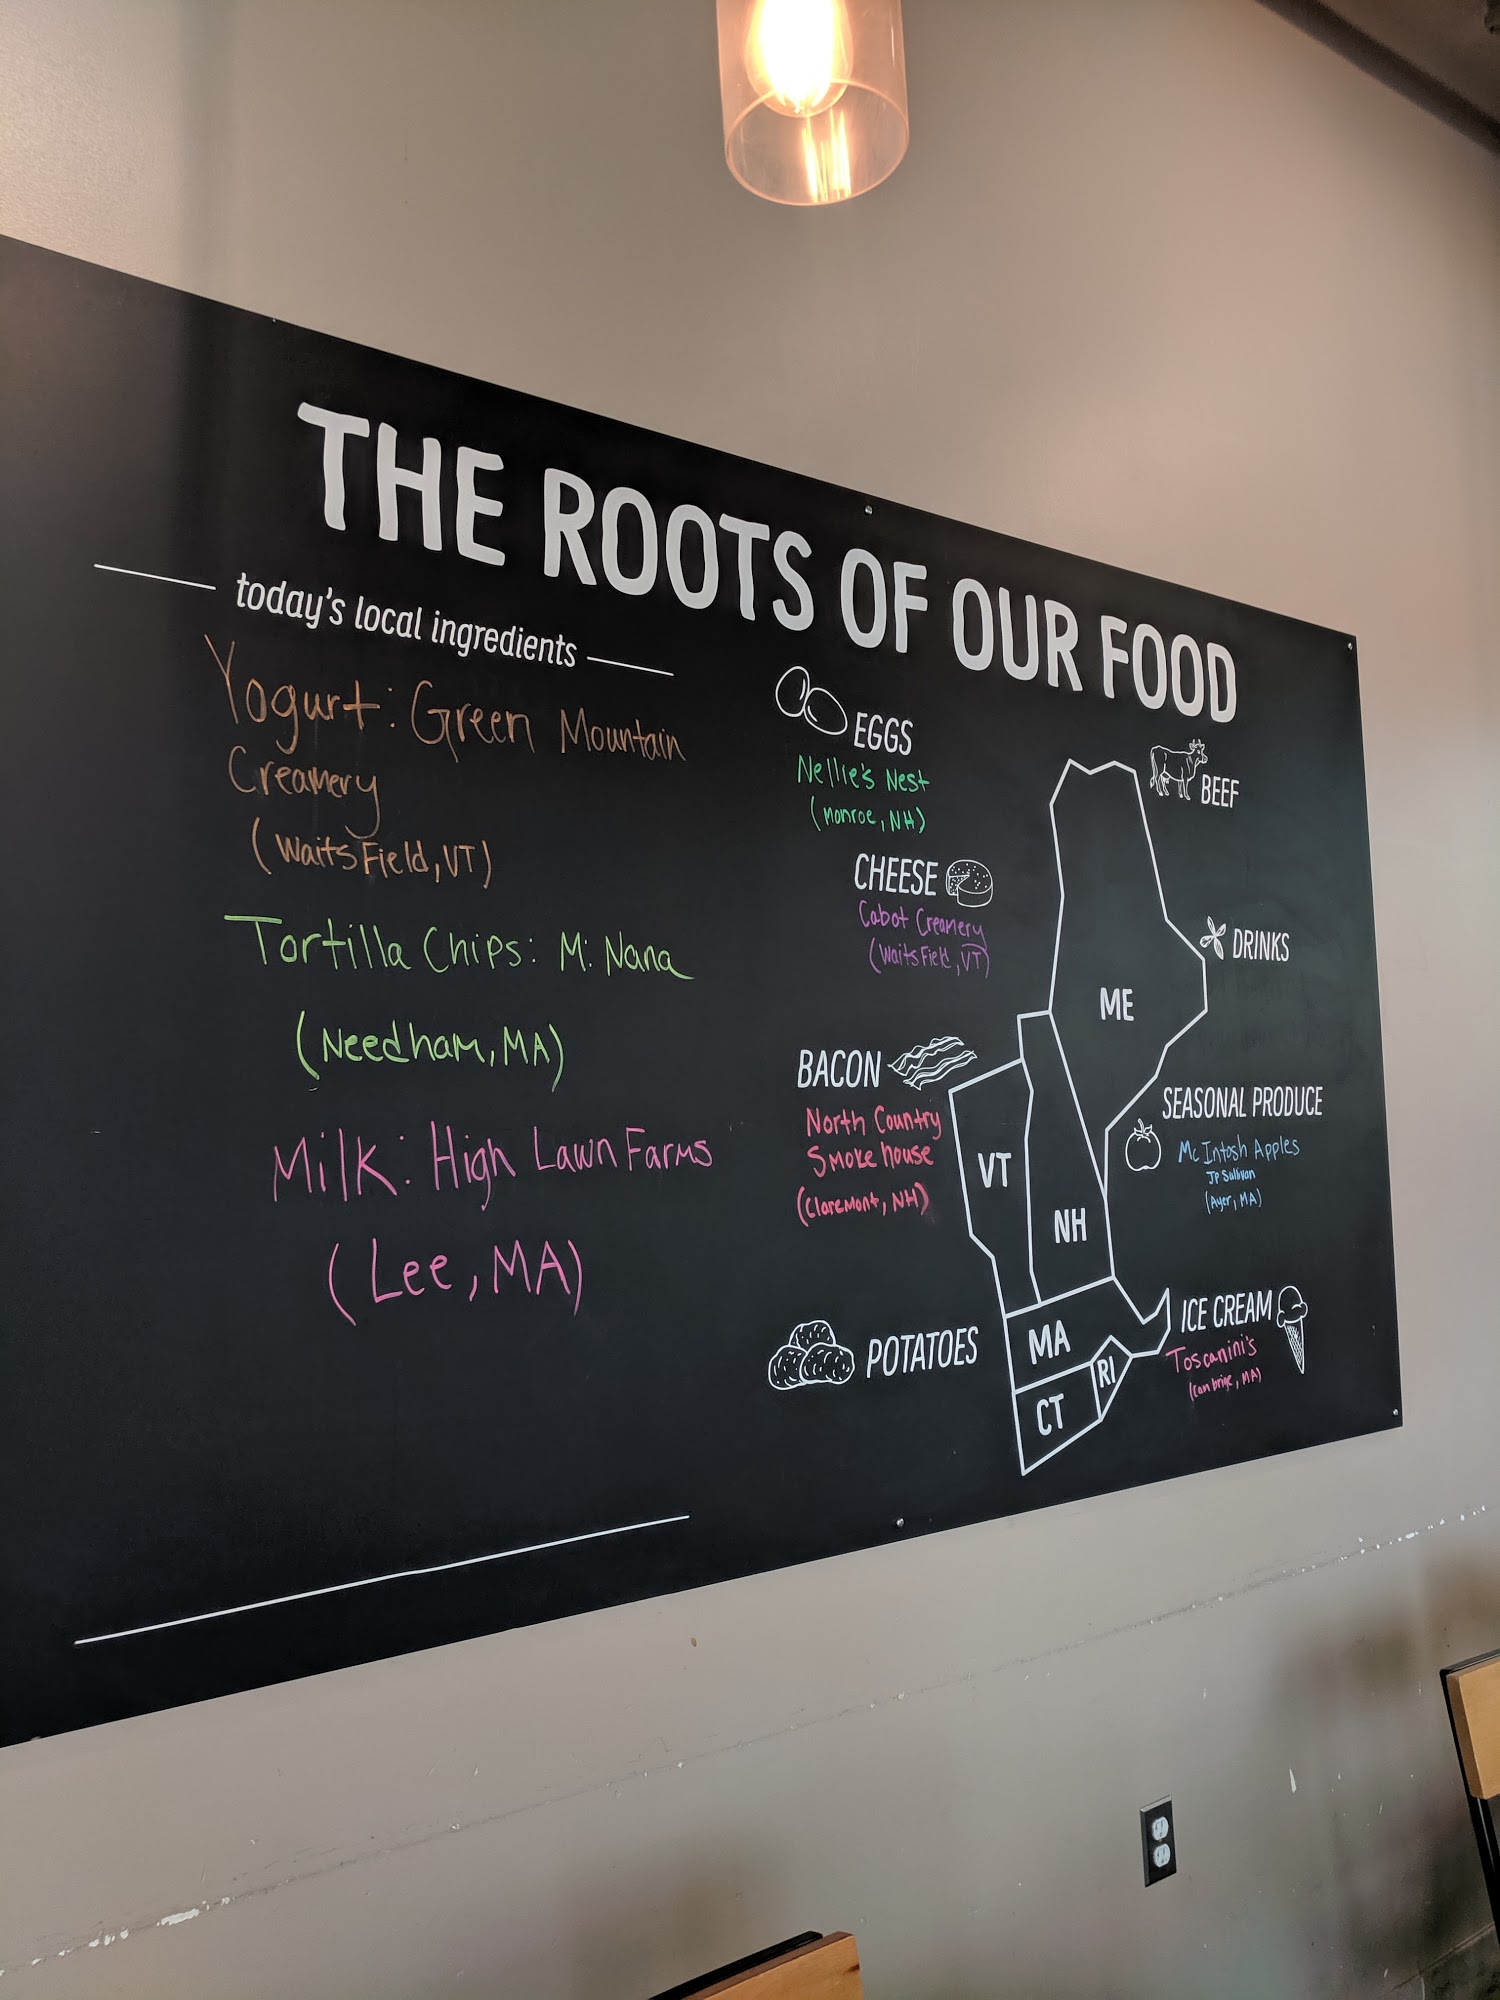 THE ROOTS OF OUR FOOD
today's local ingredients
Yogurt: Green Mountain
Creamery
(Waitsfield, VT)
Tortilla Chips: Mi Nana
(Needham, MA)
Milk: High Lawn Farms
(Lee, MA)
EGGS
Nellie's Nest
(Monroe, NH)
CHEESE
Cabot Creamery
(Waitsfield, VT)
BACON
North Country
Smoke house
(Claremont, NH)
POTATOES
BEEF
DRINKS
SEASONAL PRODUCE
McIntosh Apples
JP Sullivan
(Ayer, MA)
ICE CREAM
Toscanini's
(Cambrige, MA)
ME
VT
NH
MA
RI
CT